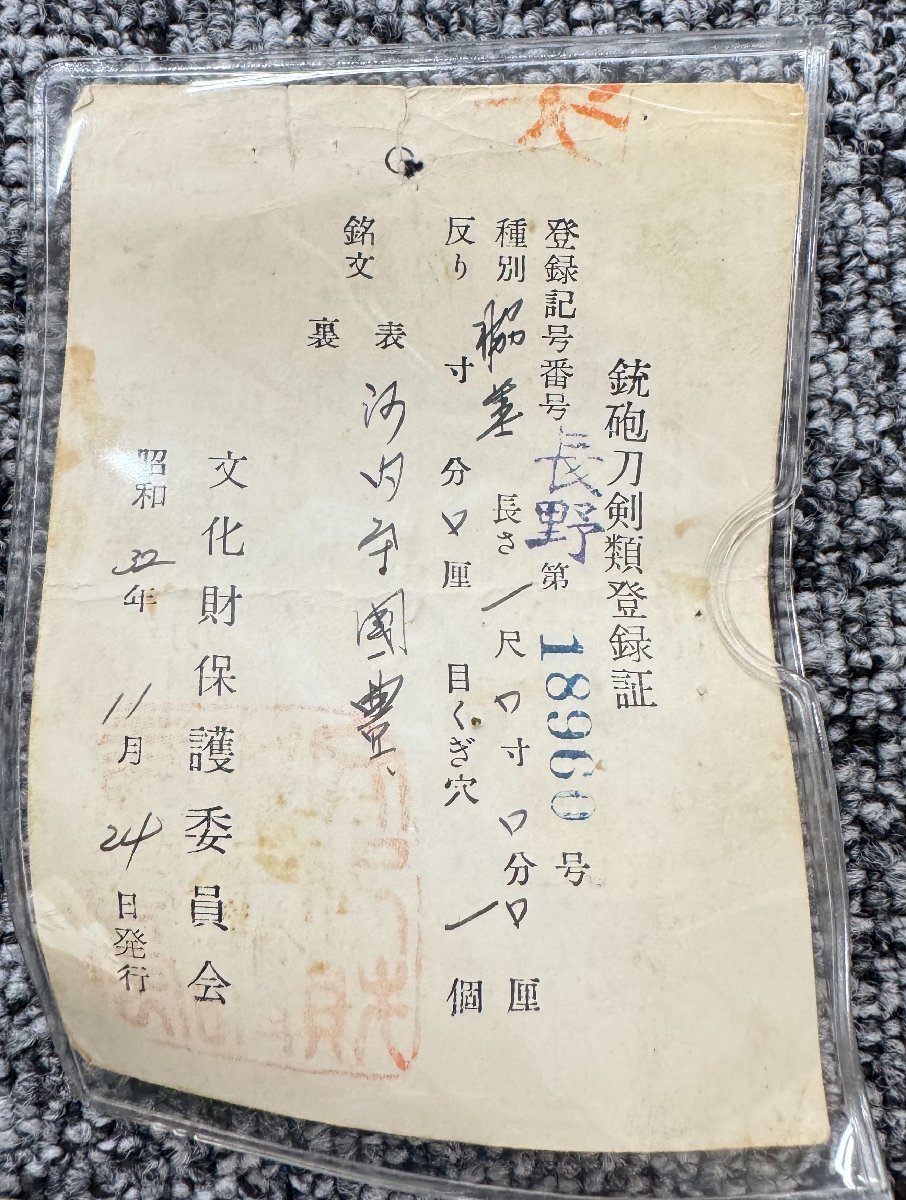 銃砲刀剣類登録証
登録記号番号 長野 第 18960 号
種別 脇差 長さ 一尺 寸 分 厘
反り 寸 分 厘 目くぎ穴 一 個
銘文 表 河内守國豊
裏
文化財保護委員会
昭和 32年 11月 24日発行